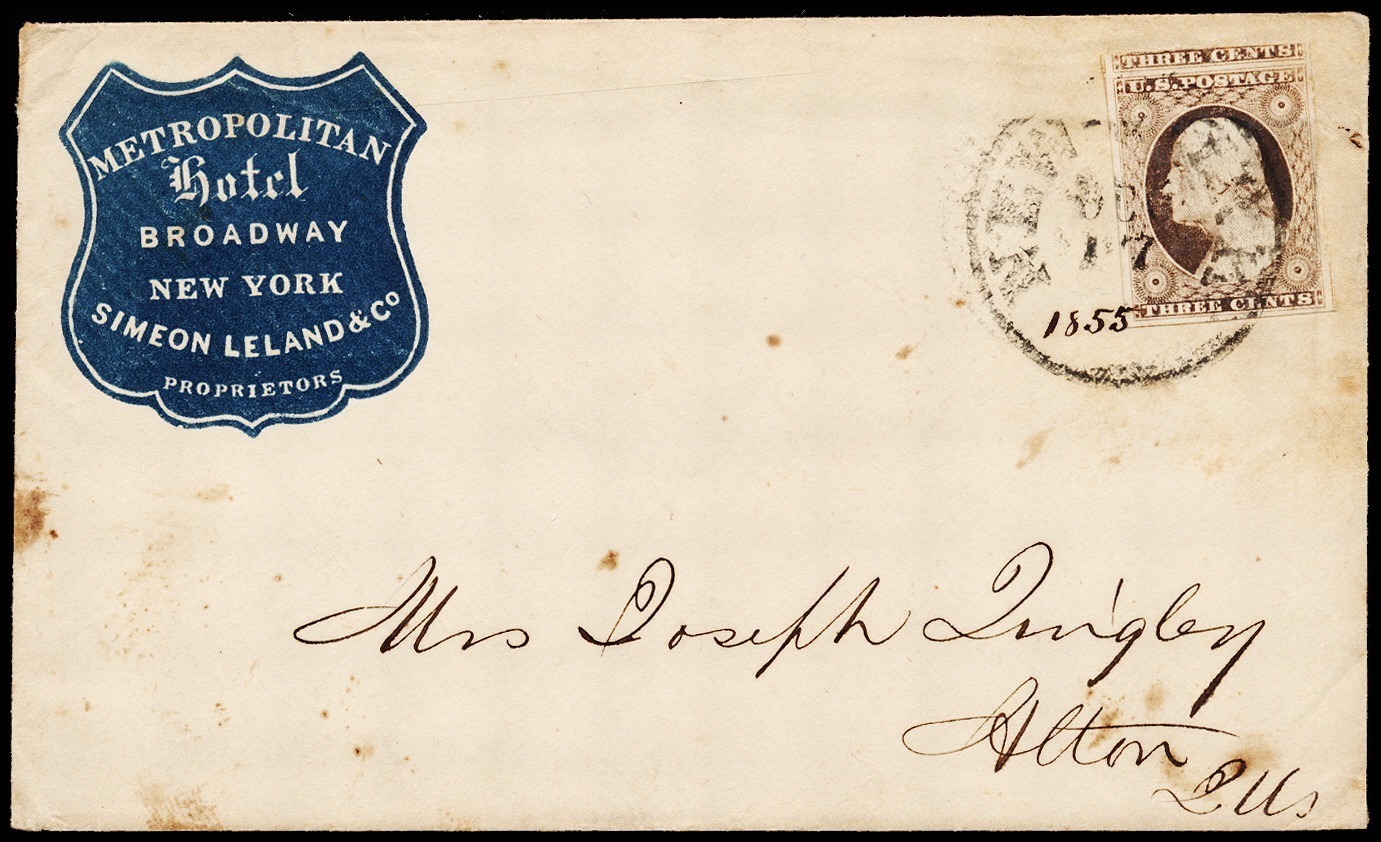 METROPOLITAN
Hotel
BROADWAY
NEW YORK
SIMEON LELAND & Co
PROPRIETORS
THREE CENTS
U.S. POSTAGE
THREE CENTS
NEW
17
1855
Mrs Joseph Quigley
Alton
Ills